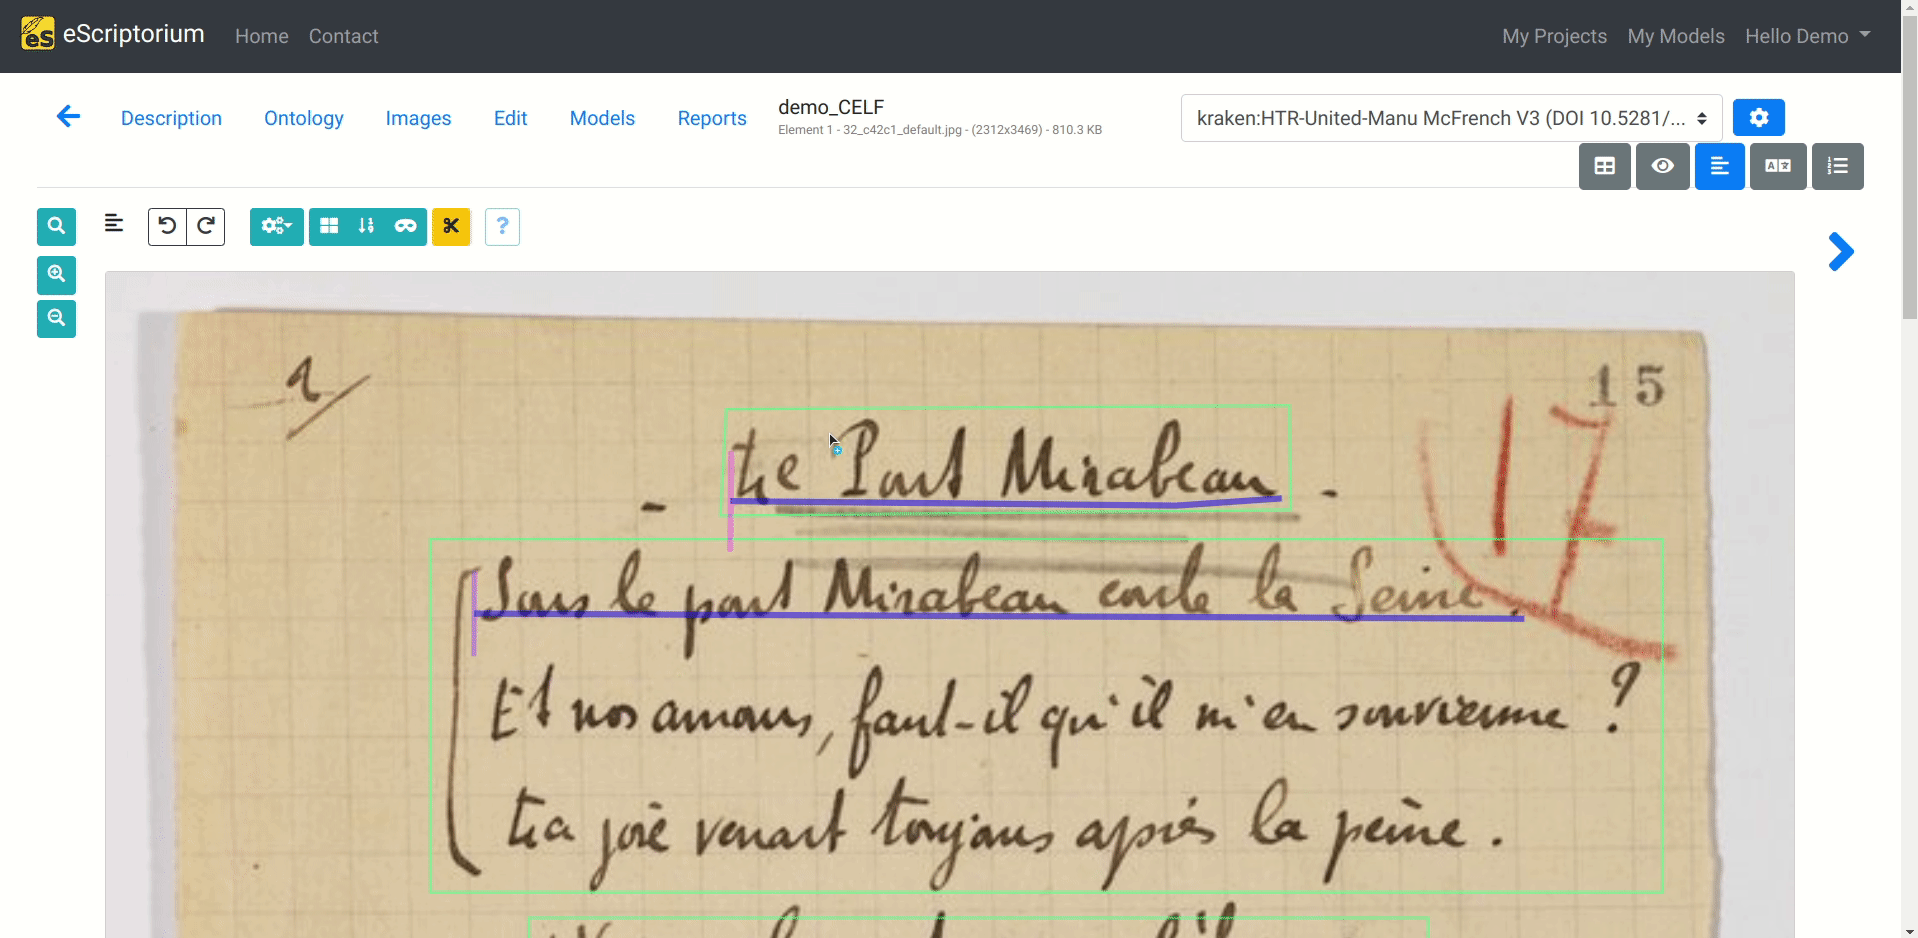 eScriptorium Home Contact My Projects My Models Hello Demo
Description Ontology Images Edit Models Reports
demo_CELF
Element 1 - 32_c42c1_default.jpg - (2312x3469) - 810.3 KB
kraken:HTR-United-Manu McFrench V3 (DOI 10.5281/...
?
1
15
17
- Le Pont Mirabeau -
Sous le pont Mirabeau coule la Seine.
Et nos amours, faut-il qu'il m'en souvienne ?
La joie venait toujours après la peine.